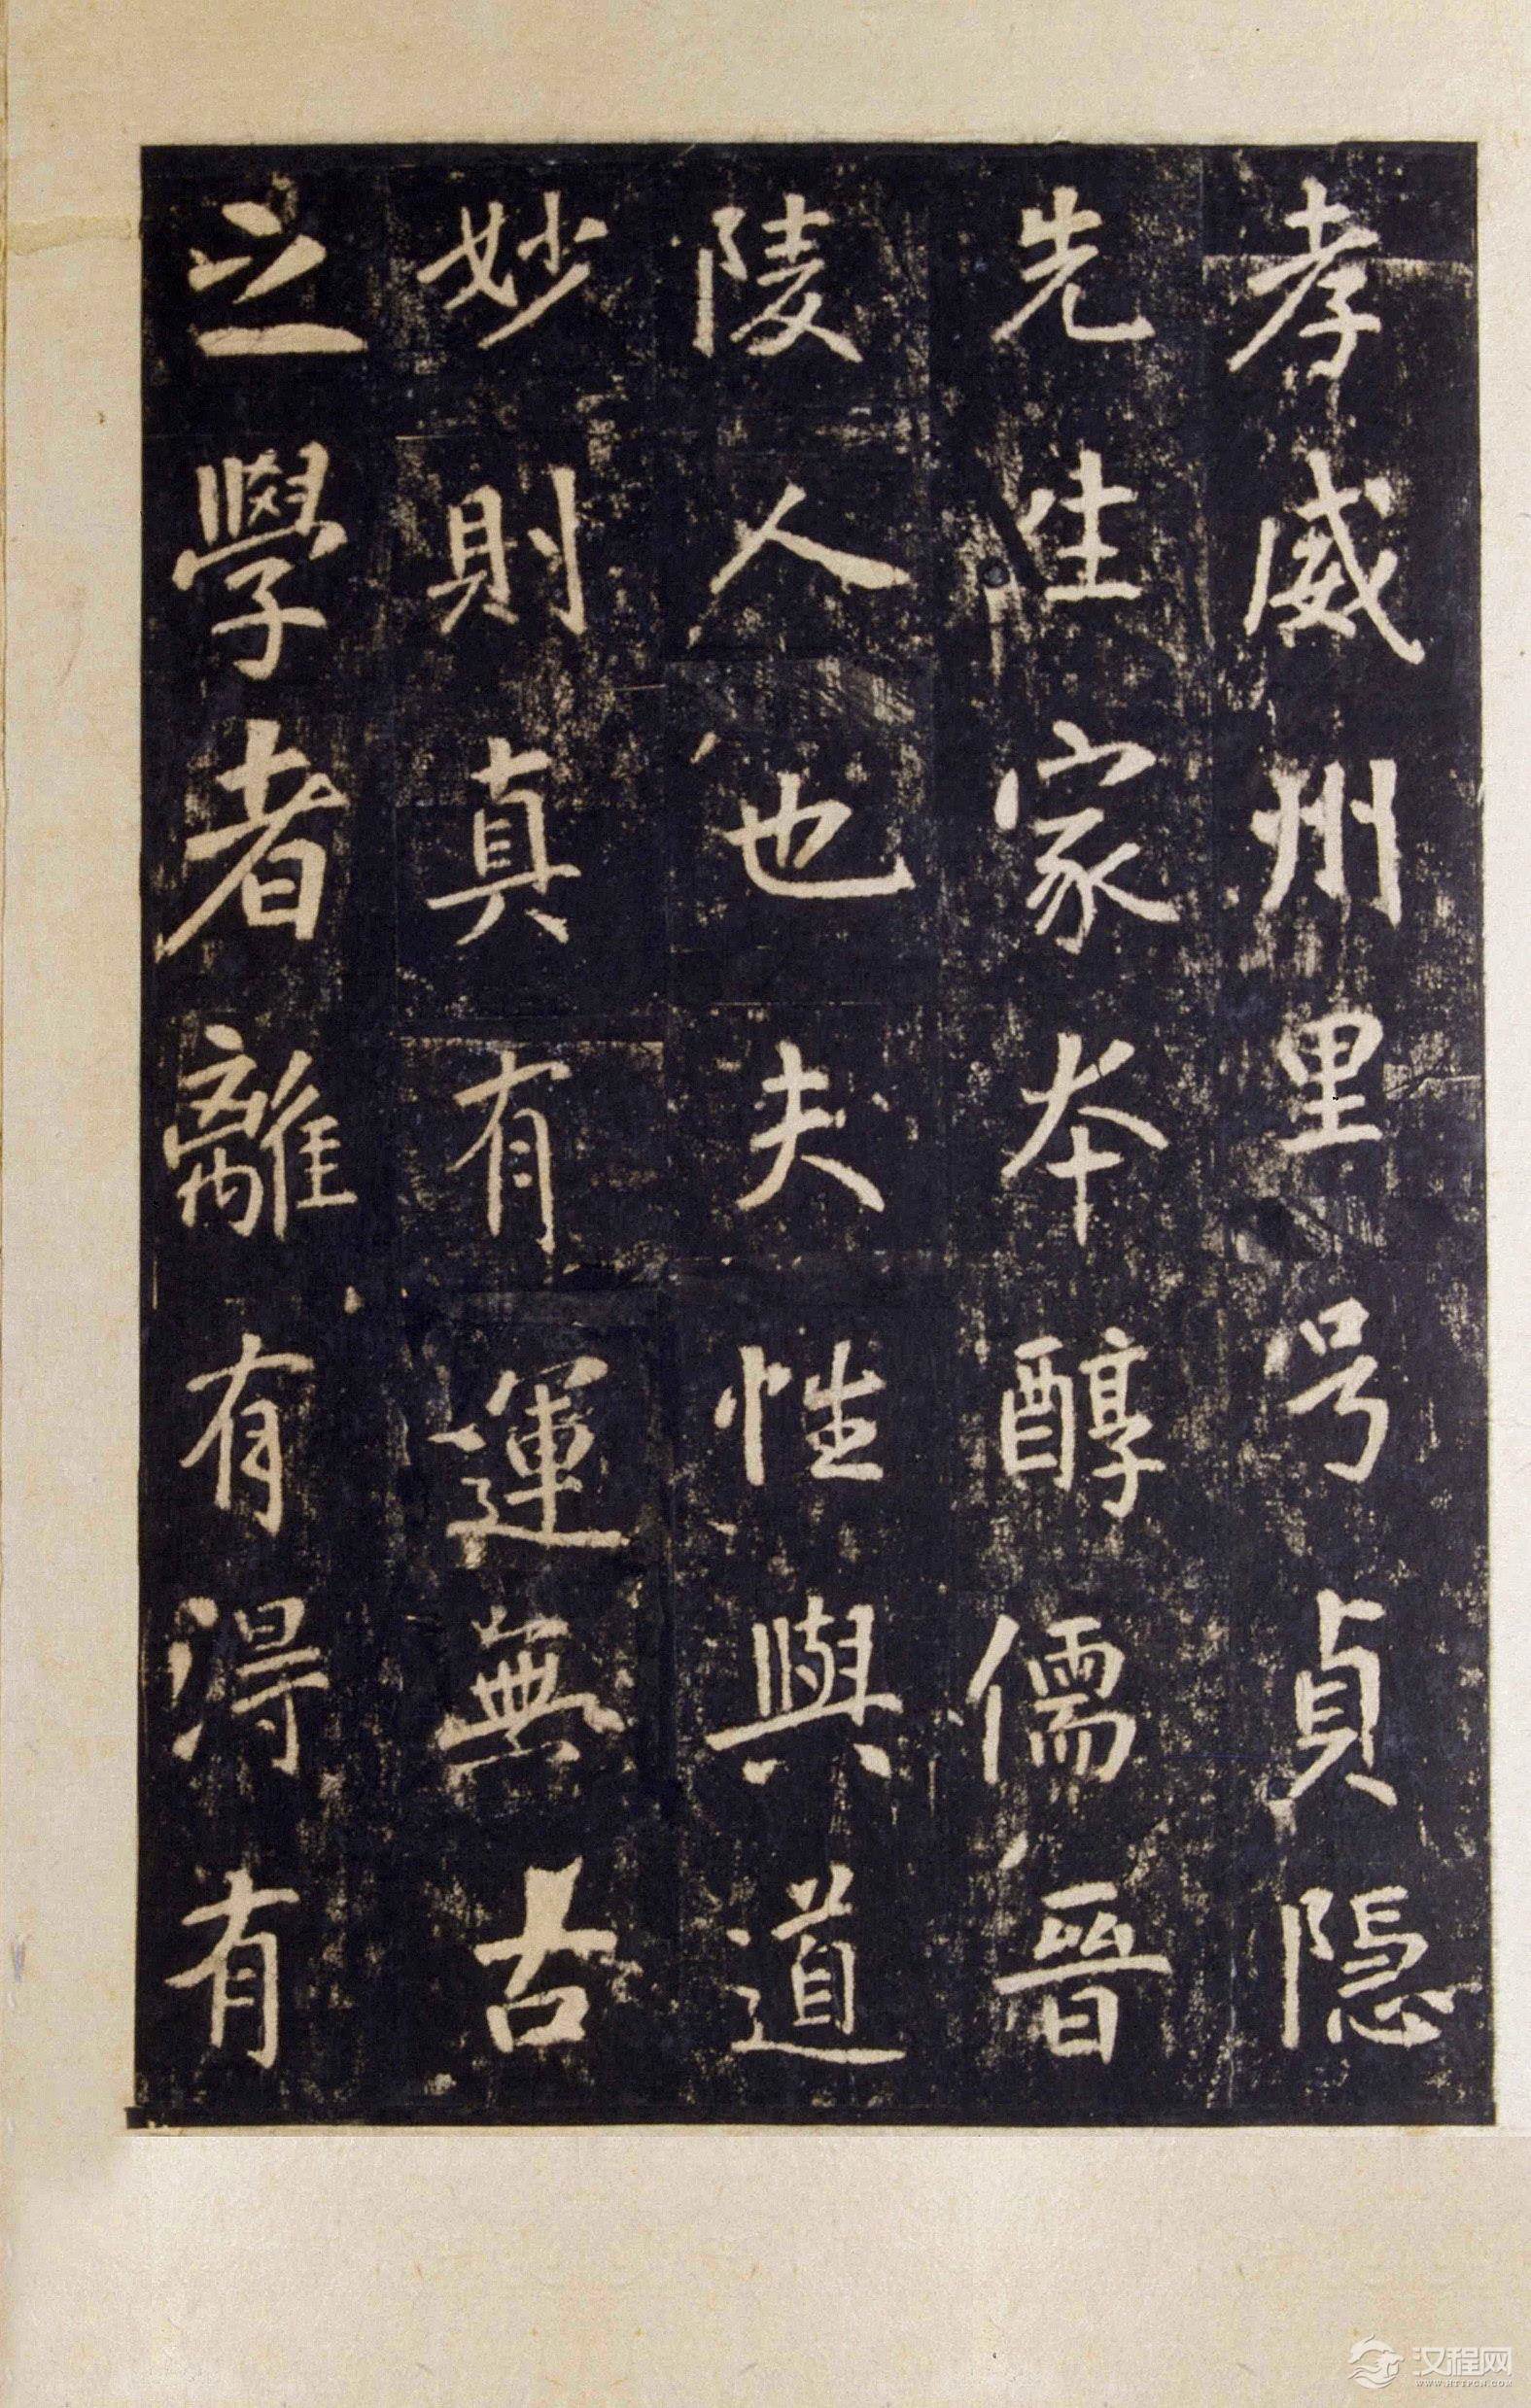 孝威州里号貞隠
先生家本醇儒晉
陵人也夫性與道
妙則真有運無古
之學者離有得有
汉程网
WWW.HTTPCN.COM